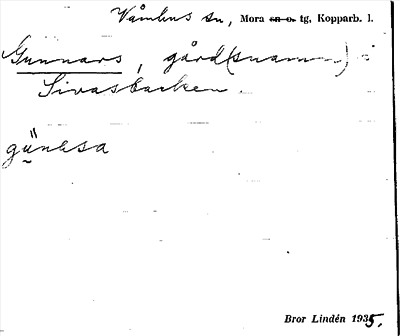 Våmhus sn, Mora sn o. tg, Kopparb. l.
Gunnars, gård(snamn) i
Sivasbacken.
günasa
Bror Lindén 1935.